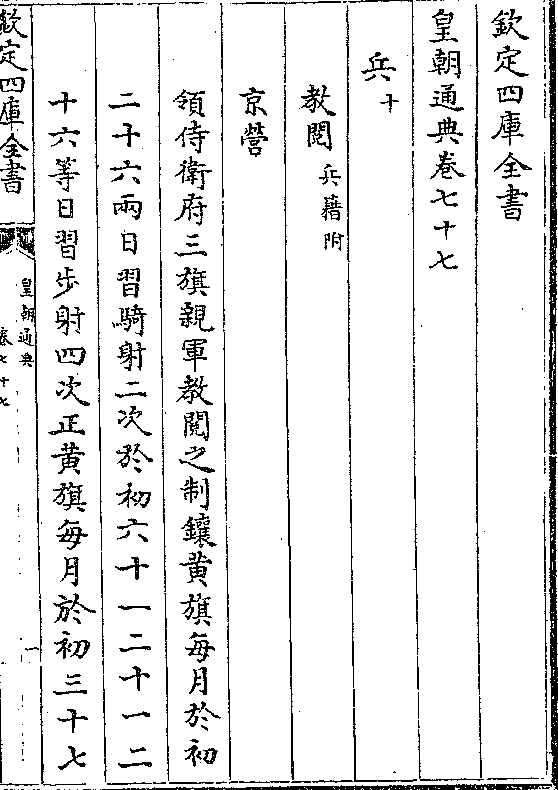 欽定四庫全書
皇朝通典卷七十七
兵十
教閱兵籍附
京營
領侍衛府三旗親軍教閱之制鑲黄旗每月於初
二十六兩日習騎射二次於初六十一二十一二
十六等日習步射四次正黄旗每月於初三十七
欽定四庫全書
皇朝通典
卷七十七
一